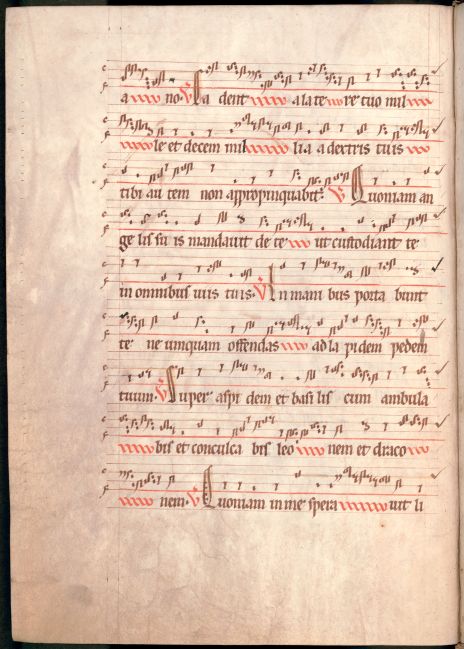 a no. V. Ca dent a la te re tuo mil
le et decem mil lia a dextris tuis
tibi au tem non appropinquabit. V. Quoniam an
ge lis su is mandavit de te ut custodiant te
in omnibus viis tuis. V. In mani bus porta bunt
te ne umquam offendas ad la pidem pedem
tuum. V. Super aspi dem et basi lis cum ambula
bis et conculca bis leo nem et draco
nem. V. Quoniam in me spera vit li